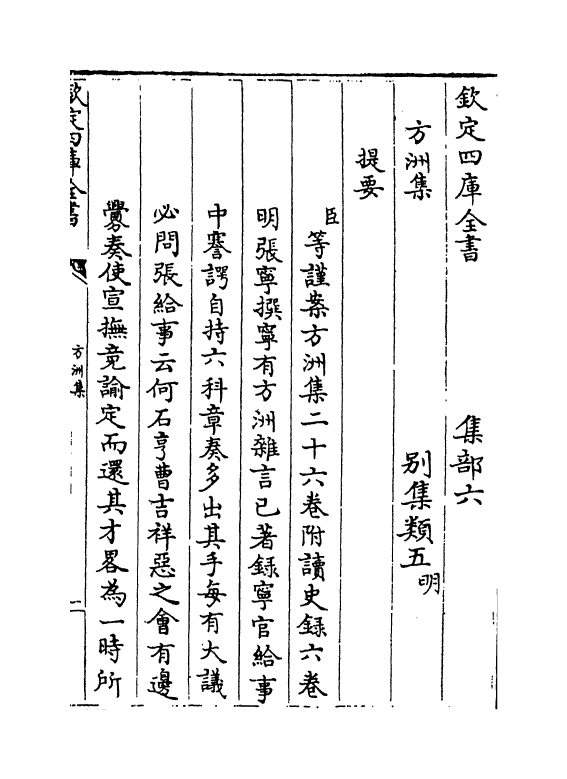 欽定四庫全書 集部六
方洲集 别集類五明
提要
臣等謹案方洲集二十六卷附讀史録六卷
明張寧撰寧有方洲雜言已著録寧官給事
中謇諤自持六科章奏多出其手每有大議
必問張給事云何石亨曹吉祥惡之會有邊
釁奏使宣撫竟諭定而還其才畧為一時所
欽定四庫全書 方洲集 一